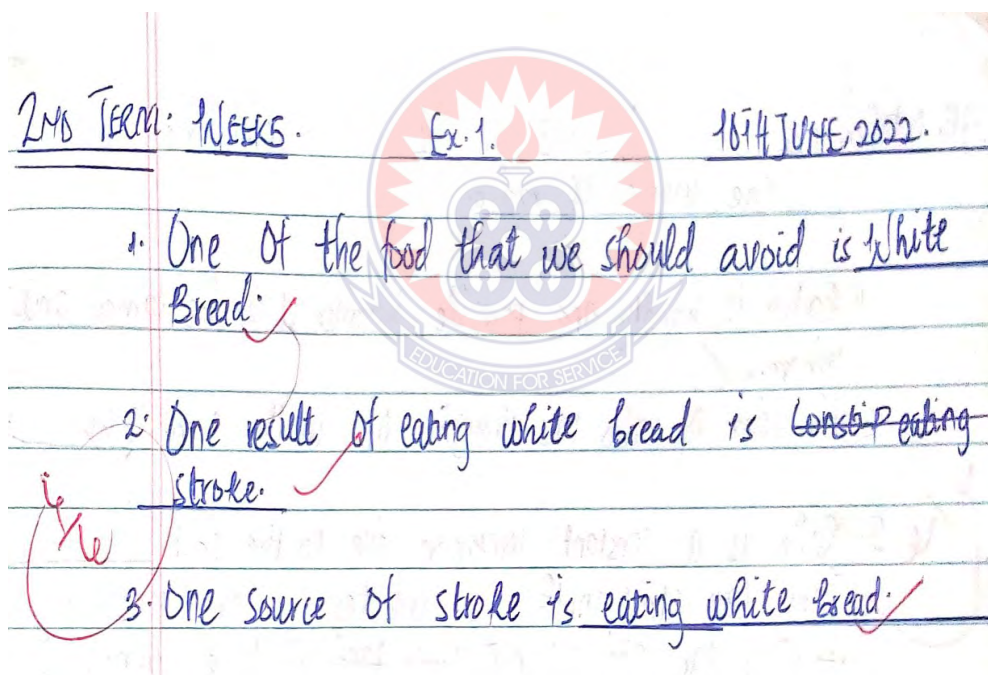 2ND TERM: WEEK5. Ex. 1. 16TH JUNE, 2022.
1. One Of the food that we should avoid is White
Bread.
2. One result of eating white bread is Constipeating
stroke.
3. One source of stroke is eating white bread.
EDUCATION FOR SERVICE